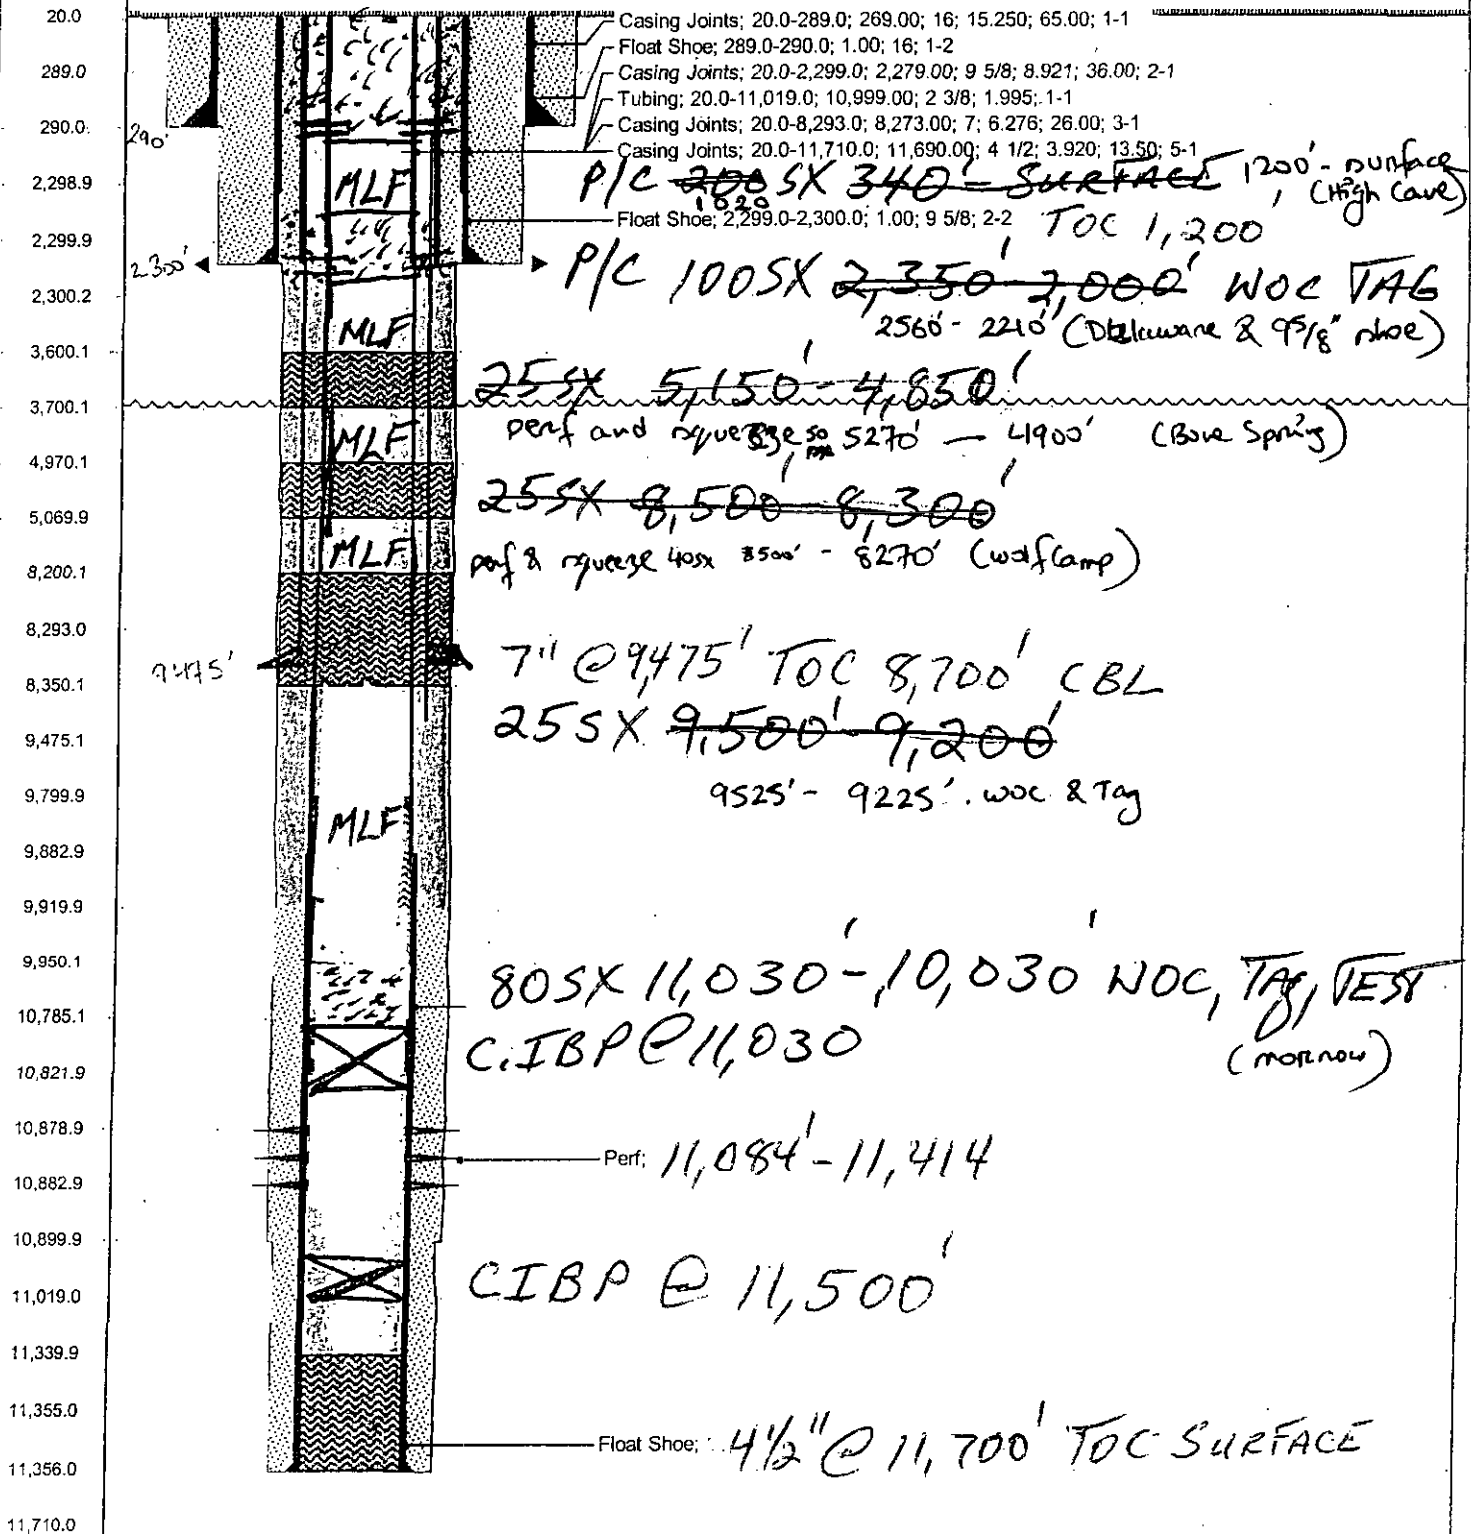 20.0
289.0
290.0
2,298.9
2,299.9
2,300.2
3,600.1
3,700.1
4,970.1
5,069.9
8,200.1
8,293.0
8,350.1
9,475.1
9,799.9
9,882.9
9,919.9
9,950.1
10,785.1
10,821.9
10,878.9
10,882.9
10,899.9
11,019.0
11,339.9
11,355.0
11,356.0
11,710.0
290'
2300'
9475'
Casing Joints; 20.0-289.0; 269.00; 16; 15.250; 65.00; 1-1
Float Shoe; 289.0-290.0; 1.00; 16; 1-2
Casing Joints; 20.0-2,299.0; 2,279.00; 9 5/8; 8.921; 36.00; 2-1
Tubing; 20.0-11,019.0; 10,999.00; 2 3/8; 1.995; 1-1
Casing Joints; 20.0-8,293.0; 8,273.00; 7; 6.276; 26.00; 3-1
Casing Joints; 20.0-11,710.0; 11,690.00; 4 1/2; 3.920; 13.50; 5-1
MLF P/C 200 SX 340' - SURFACE 1200' - surface
1020 (High Cave)
Float Shoe; 2,299.0-2,300.0; 1.00; 9 5/8; 2-2 TOC 1,200'
P/C 100SX 2,350' - 2,000' WOC TAG
MLF 2560' - 2210' (Delaware & 9 5/8" shoe)
25 SX 5,150' - 4,850'
MLF perf and squeeze 50 sx 5270' - 4900' (Bone Spring)
25 SX 8,500' - 8,300'
MLF perf & squeeze 40sx 8500' - 8270' (wolfcamp)
7" @ 9,475' TOC 8,700' CBL
25 SX 9,500' - 9,200'
9525' - 9225'. WOC & Tag
MLF
80SX 11,030' - 10,030' WOC, TAG, TEST
C.IBP @ 11,030 (morrow)
Perf; 11,084' - 11,414
CIBP @ 11,500'
Float Shoe; 4 1/2" @ 11,700' TOC SURFACE